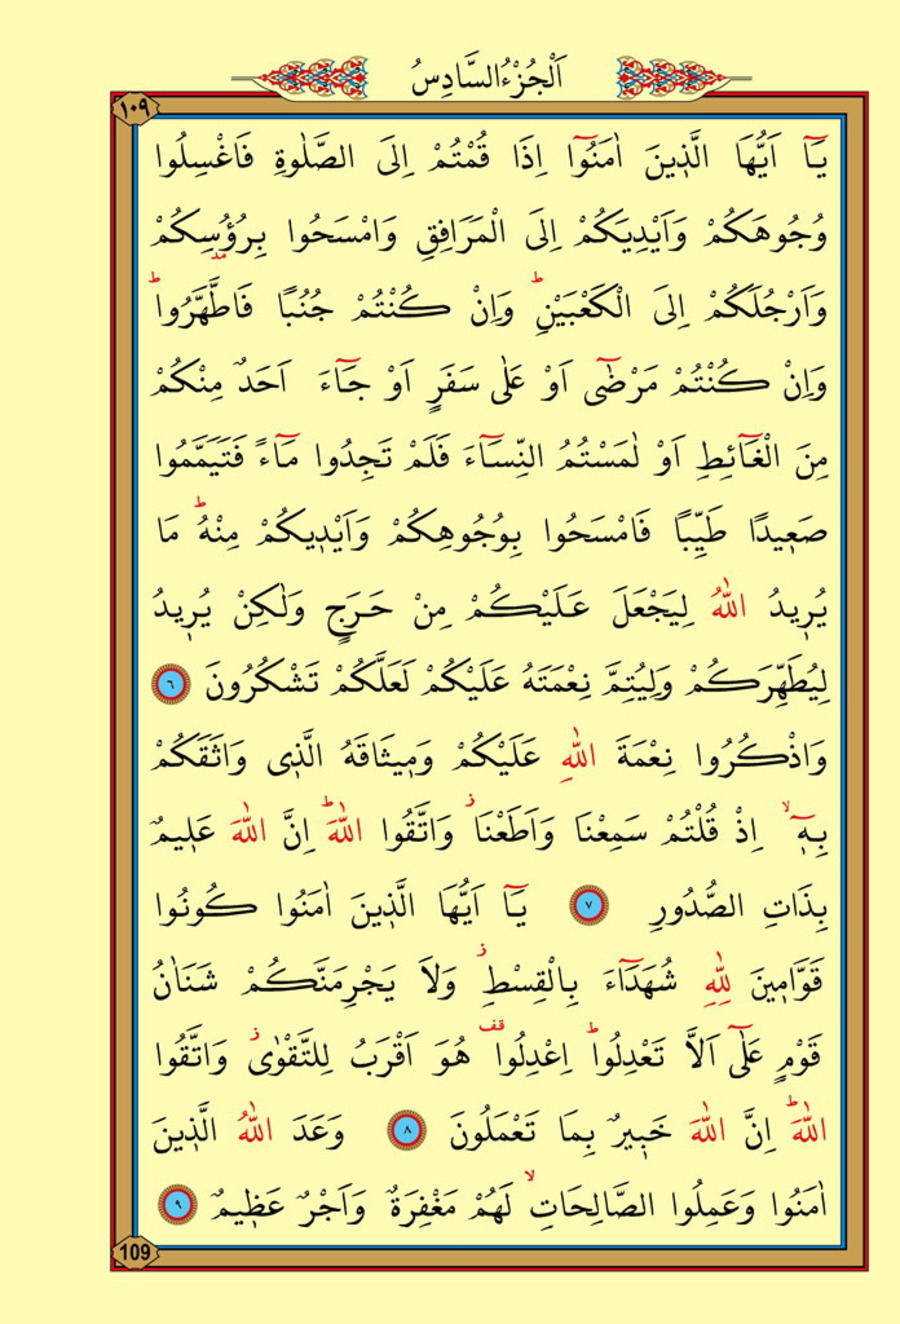 اَلْجُزْءُ السَّادِسُ
١٠٩
يَٓا اَيُّهَا الَّذ۪ينَ اٰمَنُٓوا اِذَا قُمْتُمْ اِلَى الصَّلٰوةِ فَاغْسِلُوا
وُجُوهَكُمْ وَاَيْدِيَكُمْ اِلَى الْمَرَافِقِ وَامْسَحُوا بِرُؤُ۫سِكُمْ
وَاَرْجُلَكُمْ اِلَى الْكَعْبَيْنِۜ وَاِنْ كُنْتُمْ جُنُبًا فَاطَّهَّرُواۜ
وَاِنْ كُنْتُمْ مَرْضٰٓى اَوْ عَلٰى سَفَرٍ اَوْ جَٓاءَ اَحَدٌ مِنْكُمْ
مِنَ الْغَٓائِطِ اَوْ لٰمَسْتُمُ النِّسَٓاءَ فَلَمْ تَجِدُوا مَٓاءً فَتَيَمَّمُوا
صَع۪يدًا طَيِّبًا فَامْسَحُوا بِوُجُوهِكُمْ وَاَيْد۪يكُمْ مِنْهُۜ مَا
يُر۪يدُ اللّٰهُ لِيَجْعَلَ عَلَيْكُمْ مِنْ حَرَجٍ وَلٰكِنْ يُر۪يدُ
لِيُطَهِّرَكُمْ وَلِيُتِمَّ نِعْمَتَهُ عَلَيْكُمْ لَعَلَّكُمْ تَشْكُرُونَ ٦
وَاذْكُرُوا نِعْمَةَ اللّٰهِ عَلَيْكُمْ وَم۪يثَاقَهُ الَّذ۪ى وَاثَقَكُمْ
بِه۪ٓۙ اِذْ قُلْتُمْ سَمِعْنَا وَاَطَعْنَاۘ وَاتَّقُوا اللّٰهَۜ اِنَّ اللّٰهَ عَل۪يمٌ
بِذَاتِ الصُّدُورِ ٧ يَٓا اَيُّهَا الَّذ۪ينَ اٰمَنُوا كُونُوا
قَوَّام۪ينَ لِلّٰهِ شُهَدَٓاءَ بِالْقِسْطِۘ وَلَا يَجْرِمَنَّكُمْ شَنَاٰنُ
قَوْمٍ عَلٰٓى اَلَّا تَعْدِلُواۜ اِعْدِلُوا۠ هُوَ اَقْرَبُ لِلتَّقْوٰىۘ وَاتَّقُوا
اللّٰهَۜ اِنَّ اللّٰهَ خَب۪يرٌ بِمَا تَعْمَلُونَ ٨ وَعَدَ اللّٰهُ الَّذ۪ينَ
اٰمَنُوا وَعَمِلُوا الصَّالِحَاتِۙ لَهُمْ مَغْفِرَةٌ وَاَجْرٌ عَظ۪يمٌ ٩
109